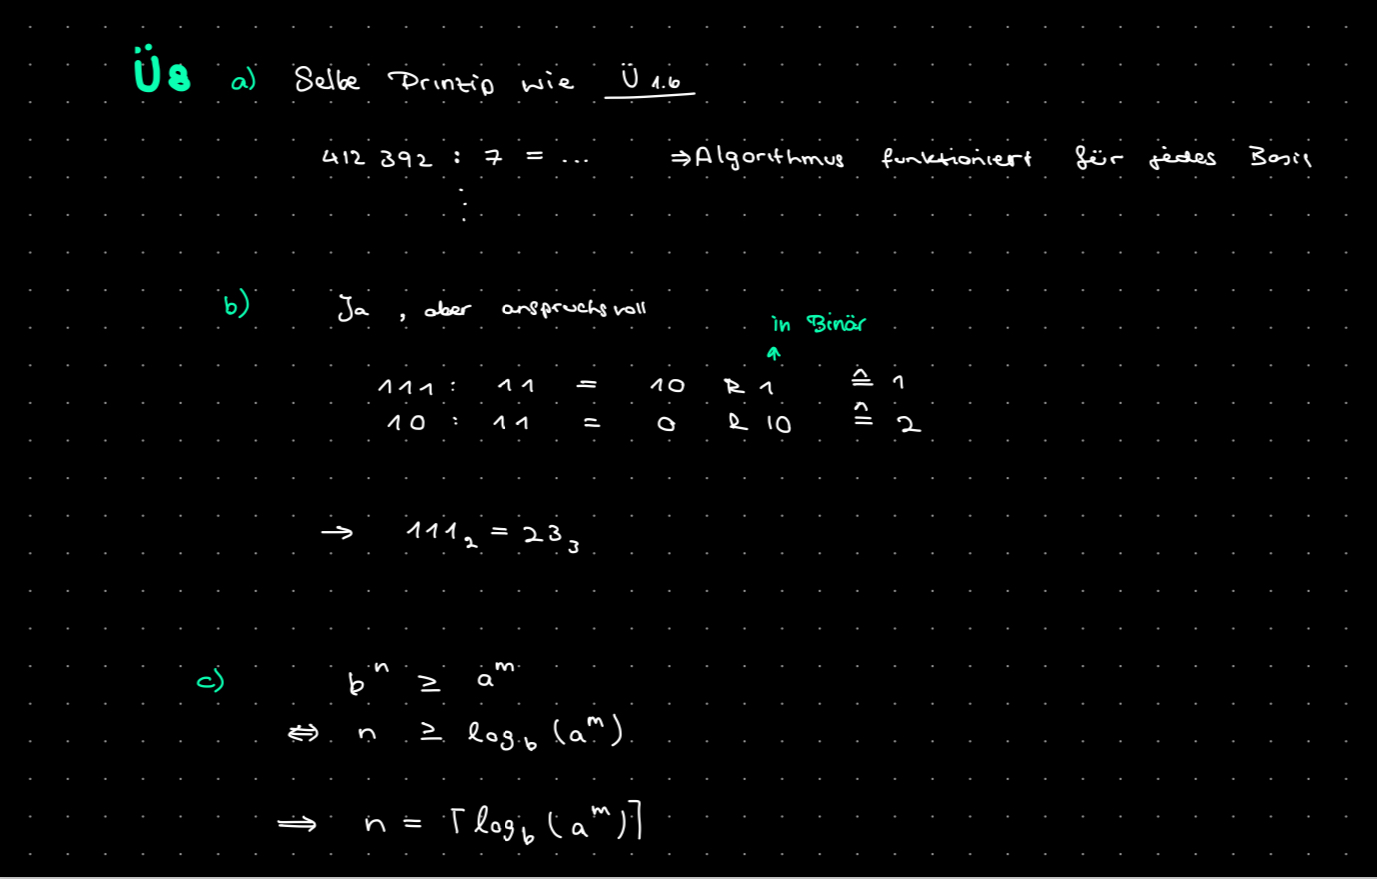 Ü8 a) Selbe Prinzip wie Ü 1.6
412 392 : 7 = ... ⇒ Algorithmus funktioniert für jedes Basis
⋮
b) Ja, aber anspruchsvoll
in Binär
↑
111 : 11 = 10 R 1 ≙ 1
10 : 11 = 0 R 10 ≙ 2
→ 111₂ = 23₃
c) bⁿ ≥ aᵐ
⇔ n ≥ log_b (aᵐ)
⇒ n = ⌈log_b (aᵐ)⌉